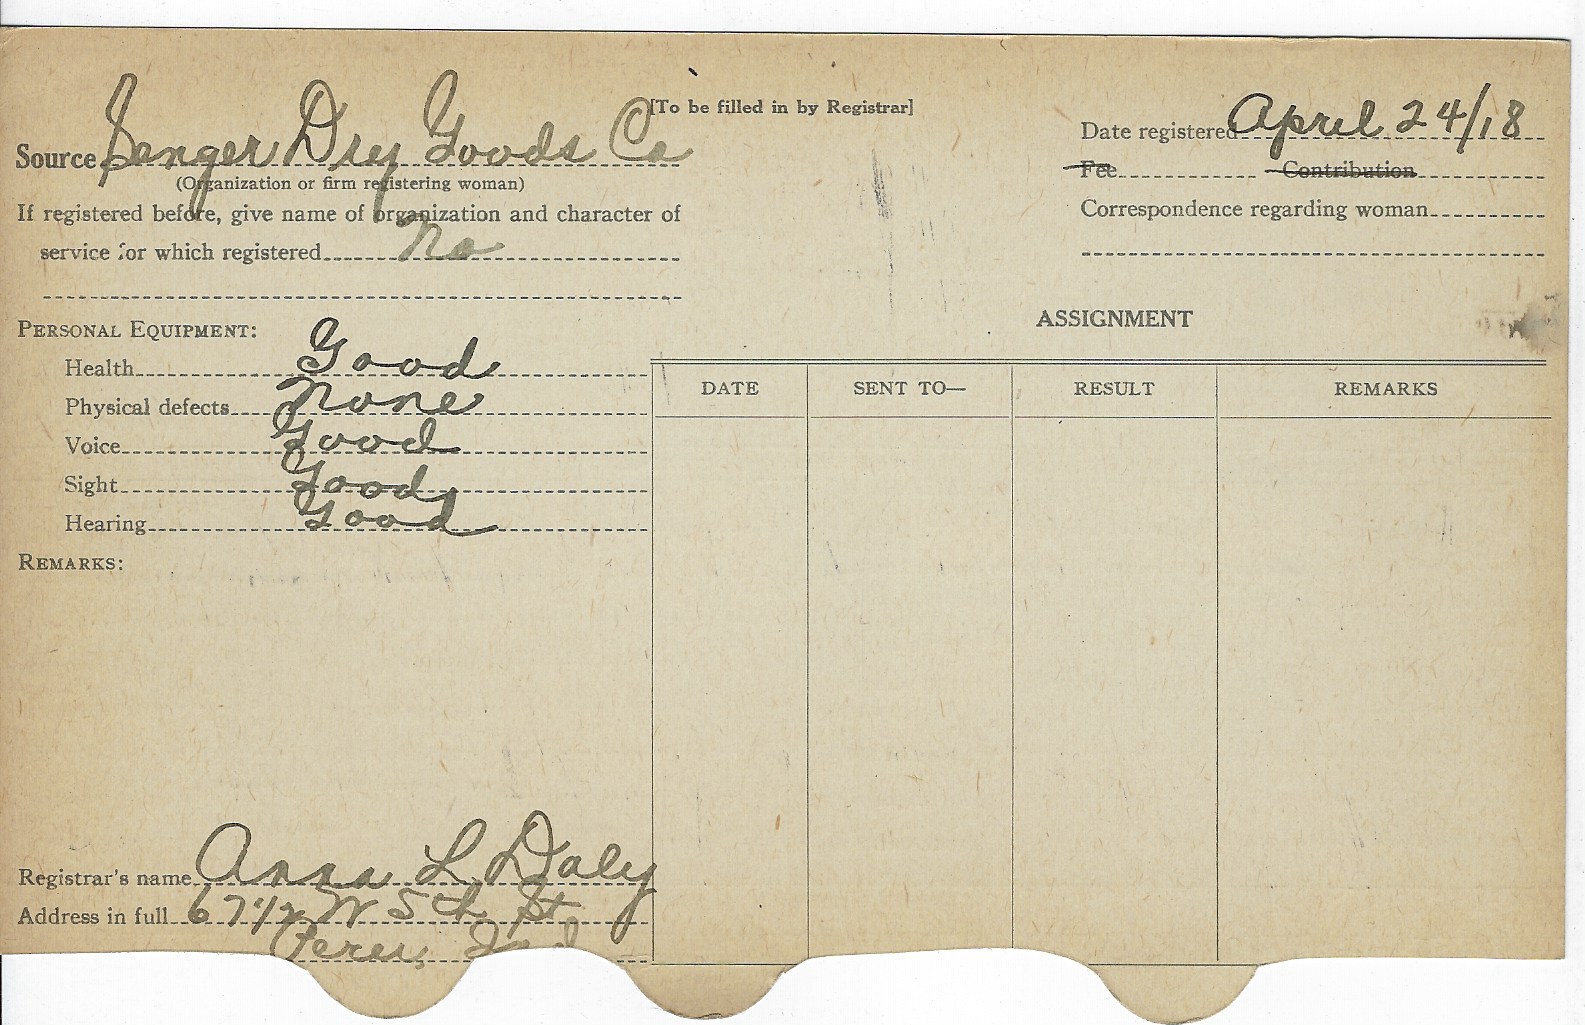 [To be filled in by Registrar]
Source Senger Dry Goods Co
(Organization or firm registering woman)
If registered before, give name of organization and character of
service for which registered No
Date registered April 24/18
Fee Contribution
Correspondence regarding woman
PERSONAL EQUIPMENT:
Health Good
Physical defects None
Voice Good
Sight Good
Hearing Good
REMARKS:
ASSIGNMENT
DATE SENT TO— RESULT REMARKS
Registrar's name Anna L Daly
Address in full 67 1/2 W 5th St
Peru, Ind